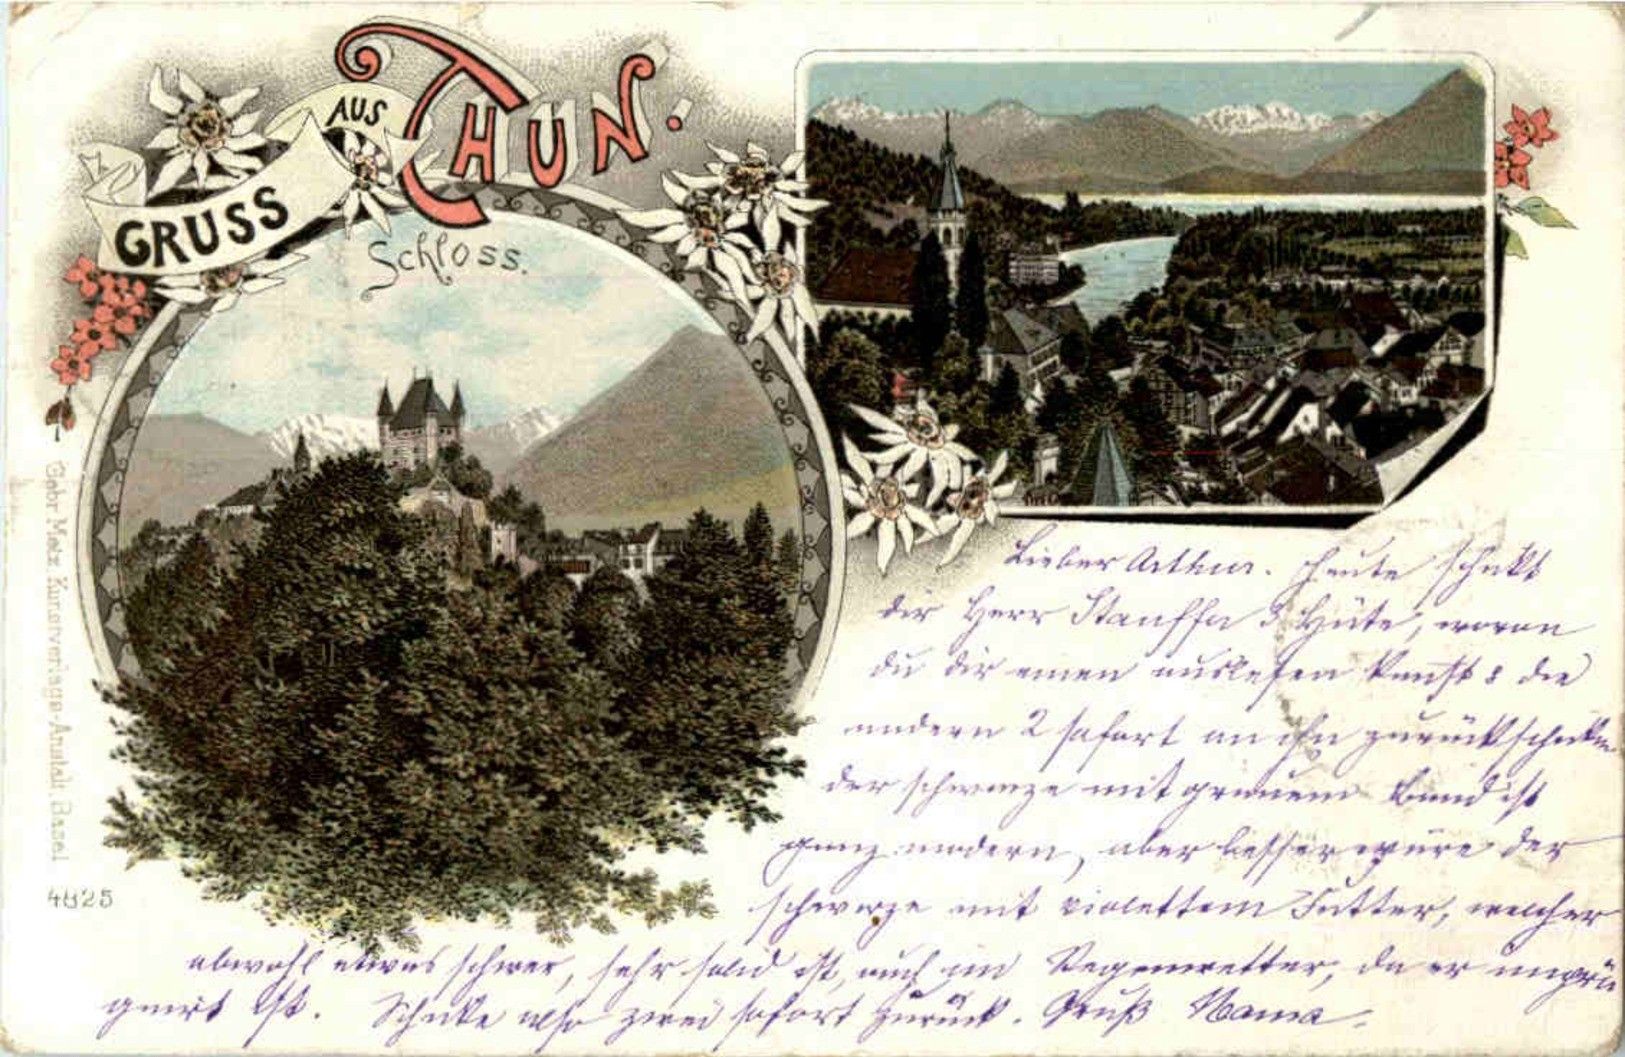 GRUSS AUS THUN.
Schloss.
Lieber Arthur. Heute schickt
dir Herr Stauffer 3 Hüte, wovon
du dir einen auslesen kannst & die
andern 2 sofort an ihn zurückschicken
der schwarze mit grauem Band ist
ganz modern, aber besser wäre der
schwarze mit violettem Futter, welcher
obwohl etwas schwer, sehr solid ist, auch im Regenwetter, da er
gniert ist. Schicke also zwei sofort zurück. Gruß Mama.
Gebr. Metz Kunstverlags-Anstalt Basel
4825